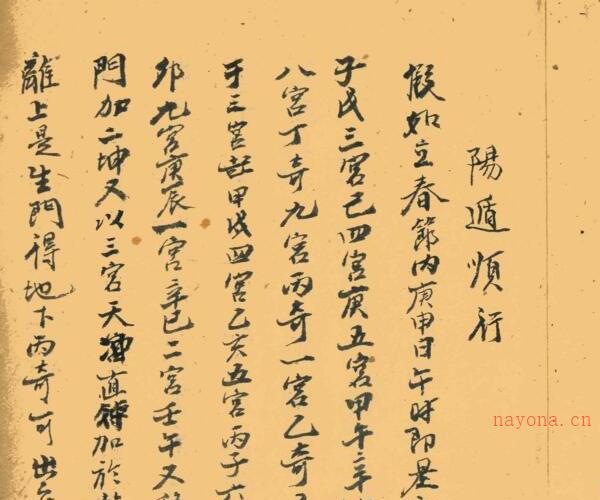 陽遁順行
假如立春節內庚申日午時即是
子戊三宮己四宮庚五宮甲午辛
八宮丁奇九宮丙奇一宮乙奇
于三宮起甲戌四宮乙亥五宮丙子六
卯九宮庚辰一宮辛巳二宮壬午又
門加二坤又以三宮天直加於
離上是生門得地下丙奇可出
nayona.cn